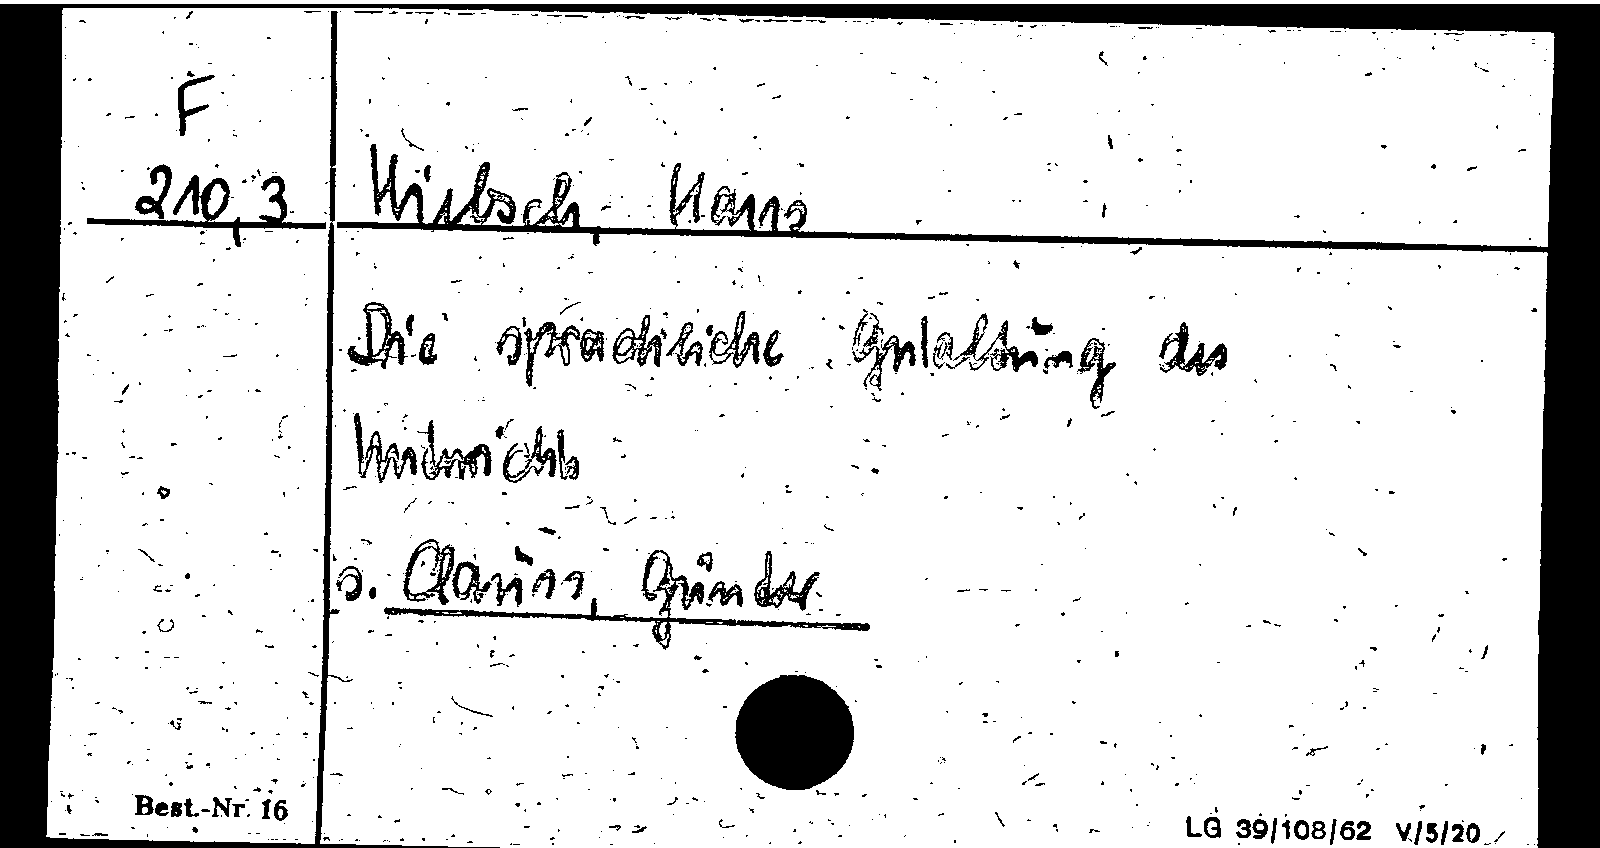 F
210,3 Wiebsch, Hans
Die sprachliche Gestaltung des
Unterrichts
s. Clauss, Günter
Best.-Nr. 16
LG 39/108/62 V/5/20